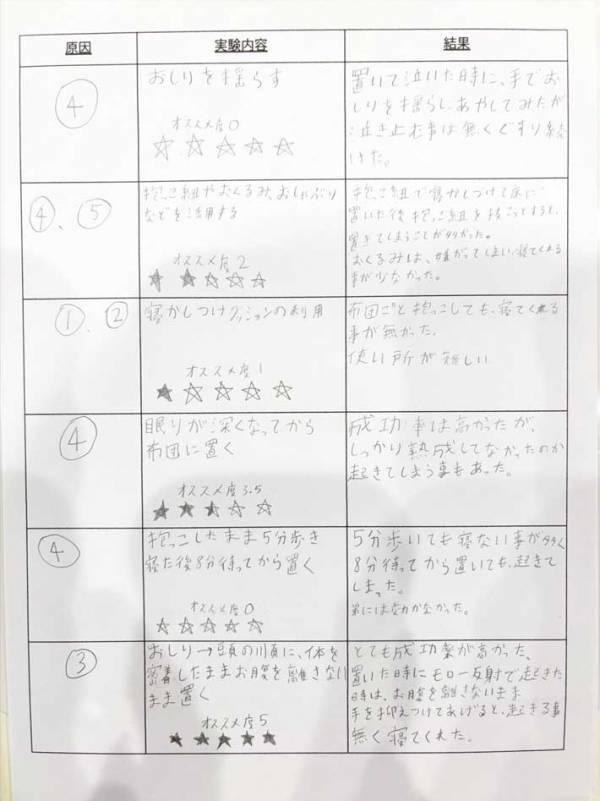 原因 実験内容 結果
④
おしりを揺らす
オススメ度0
☆☆☆☆☆
置いて泣いた時に、手でお
しりを揺らし、あやしてみたが
泣き止む事は無くぐずり続
けた。
④、⑤
抱っこ紐やおくるみ、おしゃぶり
などを活用する
オススメ度2
★★☆☆☆
抱っこ紐で寝かしつけて床に
置いた後抱っこ紐を
起きてしまうことが多かった。
おくるみは、嫌がってしまい寝てくれる
事が少なかった。
①、②
寝かしつけクッションの利用
オススメ度1
★☆☆☆☆
布団ごと抱っこしても、寝てくれる
事が無かった。
使い所が難しい
④
眠りが深くなってから
布団に置く
オススメ度3.5
成功率は高かったが、
しっかり熟成してなかったのか
起きてしまう事もあった。
④
抱っこしたまま5分歩き
寝た後8分待ってから置く
オススメ度0
☆☆☆☆☆
5分歩いても寝ない事が多く
8分待ってから置いても、起きて
しまった。
弟には効かなかった。
③
おしり→頭の順に、体を
密着したままお腹を離さない
まま置く
オススメ度5
★★★★★
とても成功率が高かった。
置いた時にモロー反射で起きた
時は、お腹を離さないまま
手を抑えつけてあげると、起きる事
無く寝てくれた。